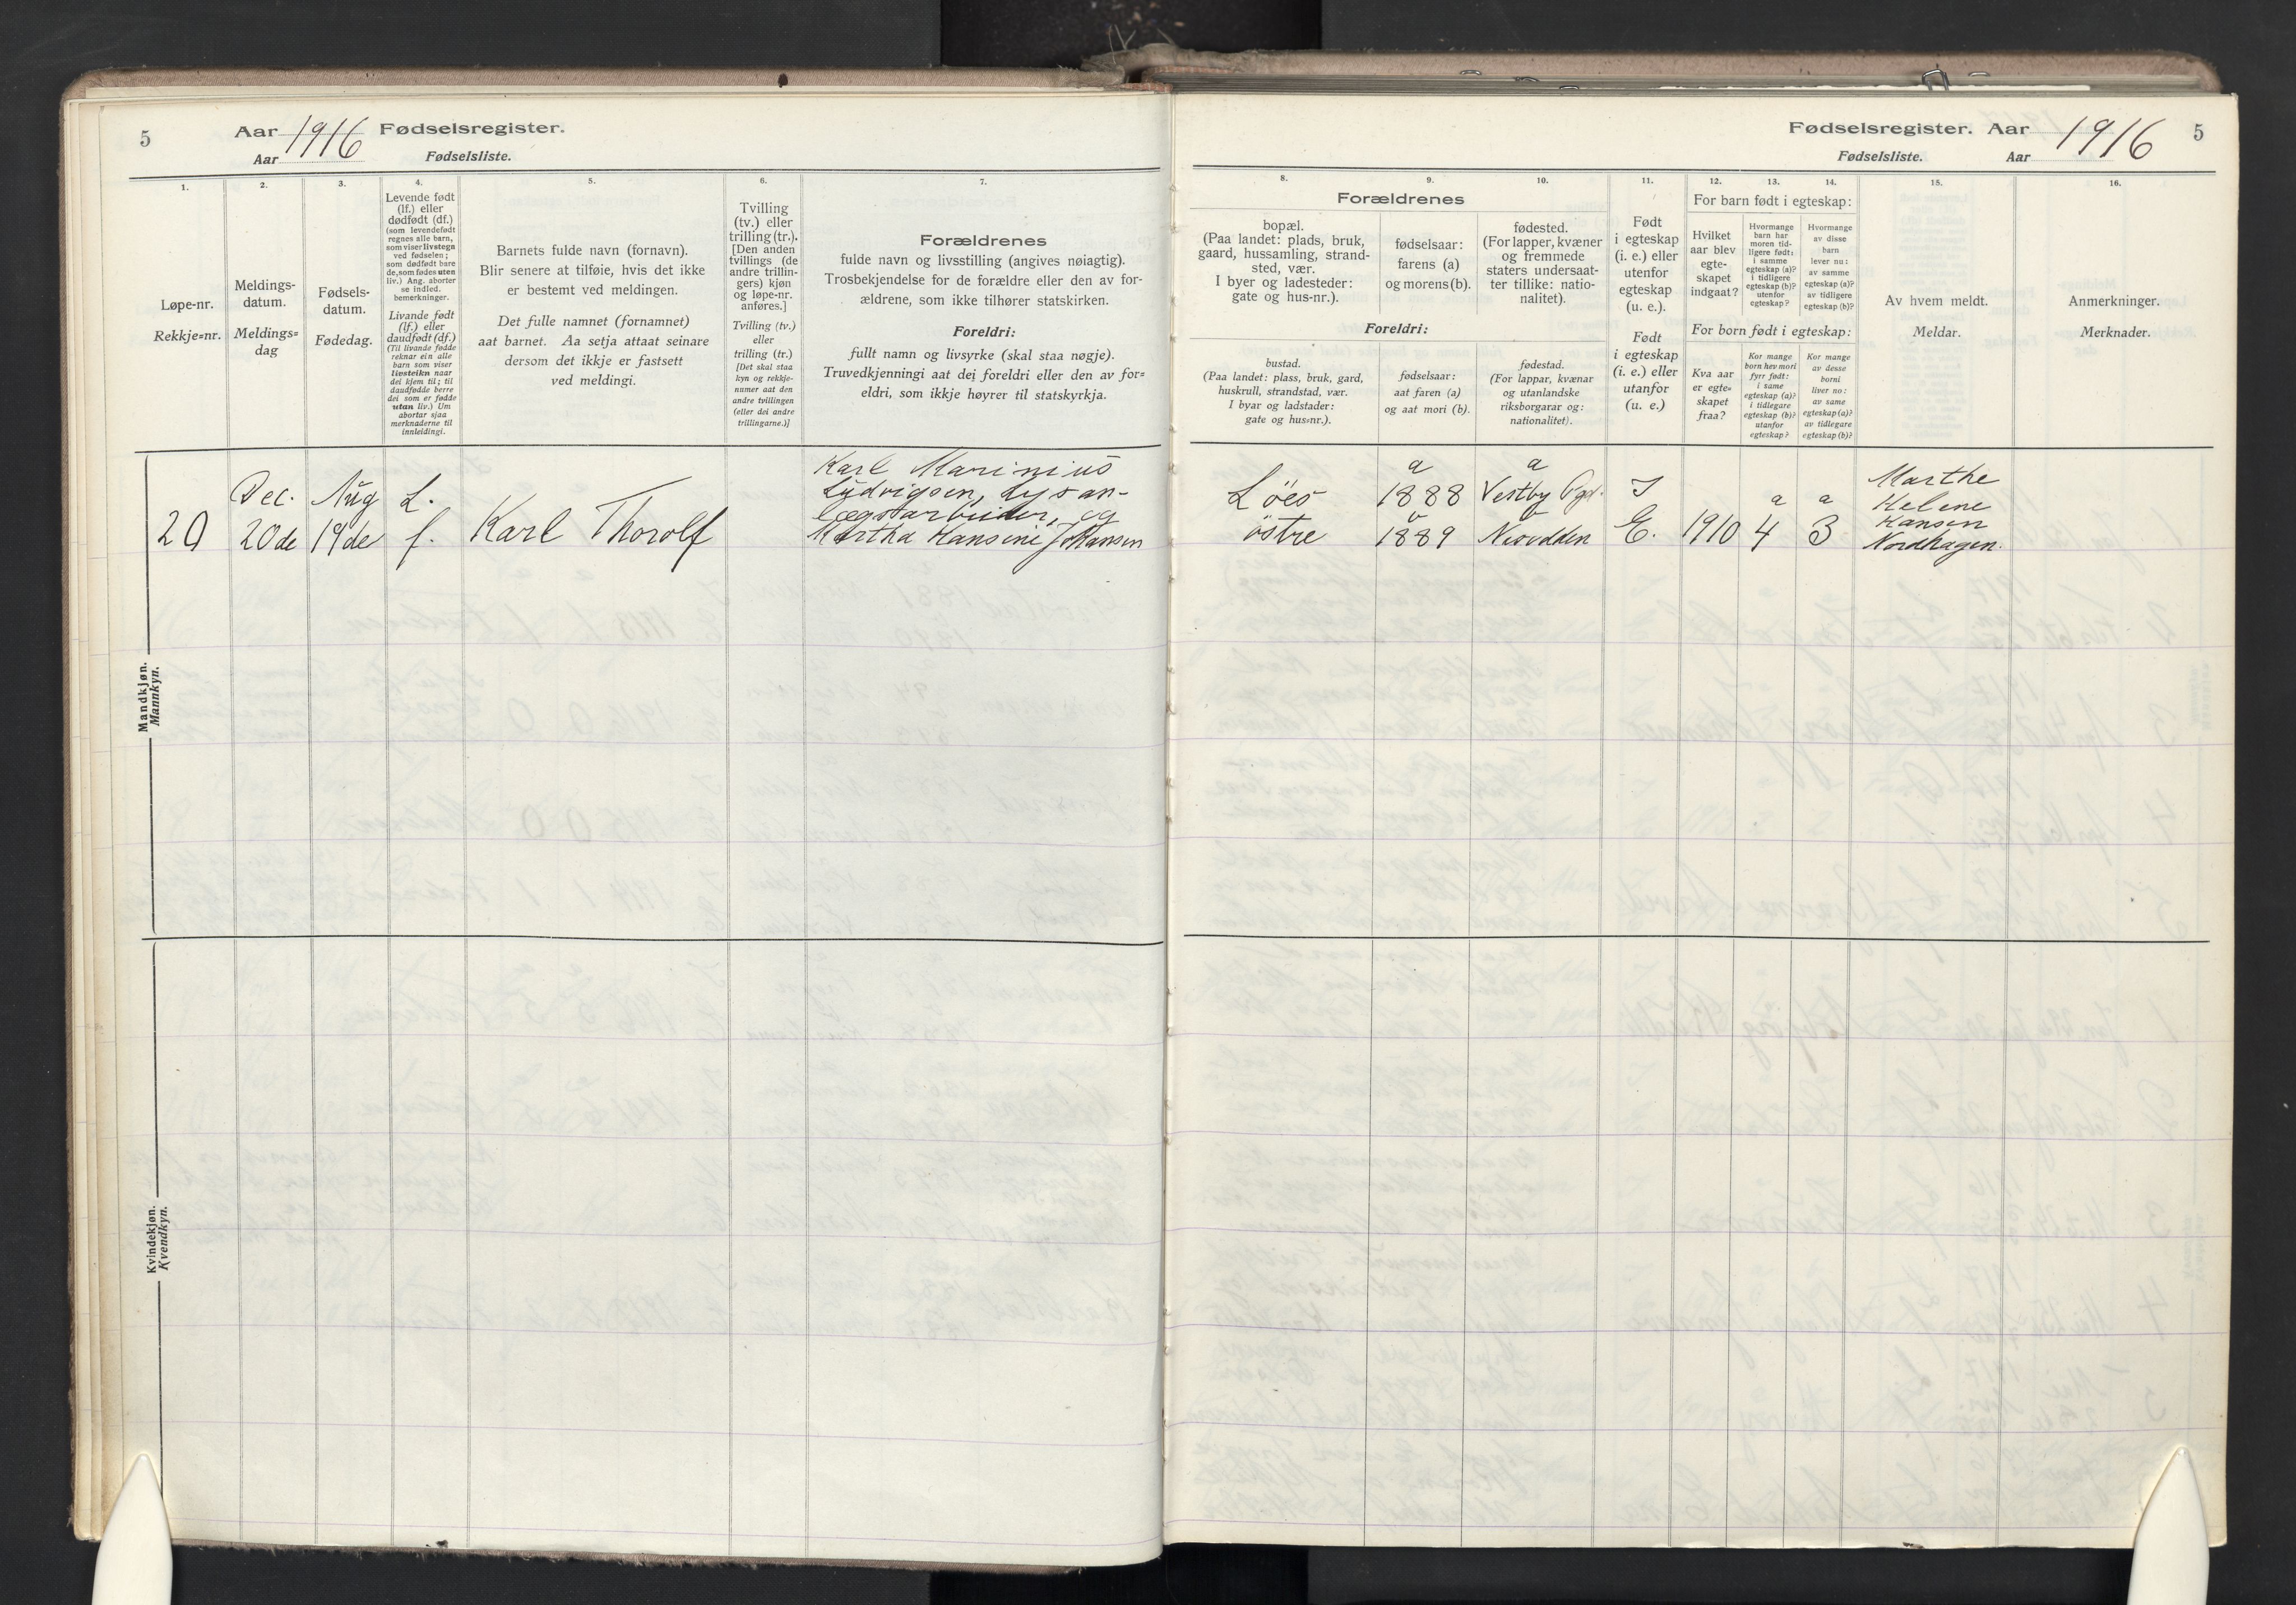 5
Aar 1916 Fødselsregister.
Aar Fødselsliste.
1.
2.
3.
4.
5.
6.
7.
Løpe-nr.
Rekkje=nr.
Meldings-
datum.
Meldings=
dag
Fødsels-
datum.
Fødedag.
Levende født
(lf.) eller
dødfødt (df.)
(som levendefødt
regnes alle barn,
som viser livstegn
ved fødselen;
som dødfødt bare
de, som fødes uten
liv.) Ang. aborter
se indled.
bemerkninger.
Livande født
(lf.) eller
daudfødt (df.)
(Til livande fødde
reknar ein alle
barn som viser
livsteikn naar
dei kjem til; til
daudfødde berre
dei som er fødde
utan liv.) Um
abortar sjaa
merknaderne til
innleidingi.
Barnets fulde navn (fornavn).
Blir senere at tilføie, hvis det ikke
er bestemt ved meldingen.
Det fulle namnet (fornamnet)
aat barnet. Aa setja attaat seinare
dersom det ikkje er fastsett
ved meldingi.
Tvilling
(tv.) eller
trilling (tr.).
[Den anden
tvillings (de
andre trillin-
gers) kjøn
og løpe-nr.
anføres.]
Tvilling (tv.)
eller
trilling (tr.)
[Det skal staa
kyn og rekkje-
numer aat den
andre tvillingen
(eller dei andre
trillingarne.)]
Forældrenes
fulde navn og livsstilling (angives nøiagtig).
Trosbekjendelse for de forældre eller den av for-
ældrene, som ikke tilhører statskirken.
Foreldri:
fullt namn og livsyrke (skal staa nøgje).
Truvedkjenningi aat dei foreldri eller den av for=
eldri, som ikkje høyrer til statskyrkja.
Mandkjøn.
Mannkyn.
20
Dec.
20de
Aug
19de
L.
f.
Karl Thorolf
Karl Marinius
Ludvigsen, Lysan-
lægsarbeider, og
Martha Hansine Johansen
Kvindekjøn.
Kvendkyn.
Fødselsregister. Aar 1916 5
Fødselsliste. Aar
8.
9.
10.
11.
12.
13.
14.
15.
16.
Forældrenes
bopæl.
(Paa landet: plads, bruk,
gaard, hussamling, strand-
sted, vær.
I byer og ladesteder:
gate og hus-nr.).
fødselsaar:
farens (a)
og morens (b).
fødested.
(For lapper, kvæner
og fremmede
staters undersaat-
ter tillike: natio-
nalitet).
Foreldri:
bustad.
(Paa landet: plass, bruk, gard,
huskrull, strandstad, vær.
I byar og ladstader:
gate og hus=nr.).
fødselsaar:
aat faren (a)
og aat mori (b).
fødestad.
(For lappar, kvænar
og utanlandske
riksborgarar og:
nationalitet).
Født
i egteskap
(i. e.) eller
utenfor
egteskap
(u. e.).
Født
i egteskap
(i. e.) eller
utanfor
(u. e.)
For barn født i egteskap:
Hvilket
aar blev
egte-
skapet
indgaat?
Hvormange
barn har
moren tid-
ligere født:
i samme
egteskap (a)?
i tidligere
egteskap (b)?
utenfor
egteskap?
Hvormange
av disse
barn
lever nu:
av samme
egteskap (a)?
av tidligere
egteskap (b)?
For born født i egteskap:
Kva aar
er egte=
skapet
fraa?
Kor mange
born hev mori
fyrr født:
i same
egteskap (a)?
i tidlegare
egteskap (b)?
utanfor
egteskap?
Kor mange
av desse
borni
liver no:
av same
egteskap (a)?
av tidlegare
egteskap (b)?
Av hvem meldt.
Meldar.
Anmerkninger.
Merknader.
Löes
östre
a
1888
1889
a
Vestby Pgd.
Nesodden
I
E.
1910
a
4
a
3
Marthe
Helene
Hansen
Nordhagen.